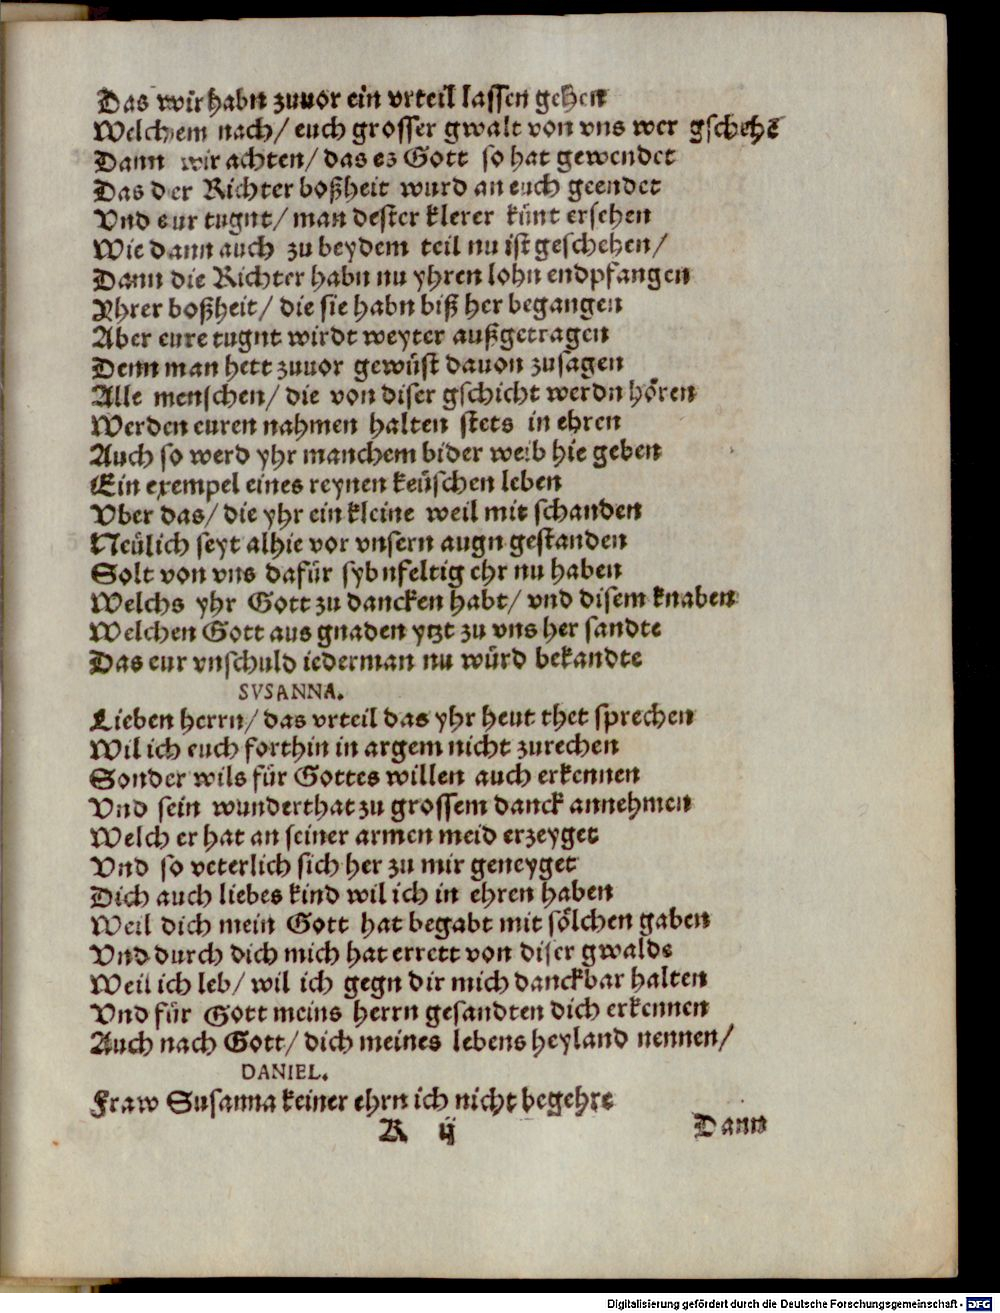 Das wir habn zuuor ein vrteil lassen gehen
Welchem nach/ euch grosser gwalt von vns wer gschehē
Dann wir achten/ das es Gott so hat gewendet
Das der Richter boßheit wurd an euch geendet
Vnd eur tugnt/ man dester klerer künt ersehen
Wie dann auch zu beydem teil nu ist geschehen/
Dann die Richter habn nu yhren lohn endpfangen
Yhrer boßheit/ die sie habn biß her begangen
Aber eure tugnt wirdt weyter außgetragen
Denn man hett zuuor gewüst dauon zusagen
Alle menschen/ die von diser gschicht werdn hören
Werden euren nahmen halten stets in ehren
Auch so werd yhr manchem bider weib hie geben
Ein exempel eines reynen keüschen leben
Vber das/ die yhr ein kleine weil mit schanden
Neülich seyt alhie vor vnsern augn gestanden
Solt von vns dafür sybnfeltig ehr nu haben
Welchs yhr Gott zu dancken habt/ vnd disem knaben
Welchen Gott aus gnaden ytzt zu vns her sandte
Das eur vnschuld iederman nu würd bekandte
SVSANNA.
Lieben herrn/ das vrteil das yhr heut thet sprechen
Wil ich euch forthin in argem nicht zurechen
Sonder wils für Gottes willen auch erkennen
Vnd sein wunderthat zu grossem danck annehmen
Welch er hat an seiner armen meid erzeyget
Vnd so veterlich sich her zu mir geneyget
Dich auch liebes kind wil ich in ehren haben
Weil dich mein Gott hat begabt mit sölchen gaben
Vnd durch dich mich hat errett von diser gwalde
Weil ich leb/ wil ich gegn dir mich danckbar halten
Vnd für Gott meins herrn gesandten dich erkennen
Auch nach Gott/ dich meines lebens heyland nennen/
DANIEL.
Fraw Susanna keiner ehrn ich nicht begehre
K ij Dann
Digitalisierung gefördert durch die Deutsche Forschungsgemeinschaft - DFG